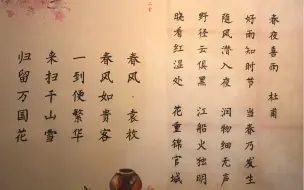 春夜喜雨 杜甫
好雨知时节 当春乃发生
随风潜入夜 润物细无声
野径云俱黑 江船火独明
晓看红湿处 花重锦官城
春风·袁枚
春风如贵客
一到便繁华
来扫千山雪
归留万国花